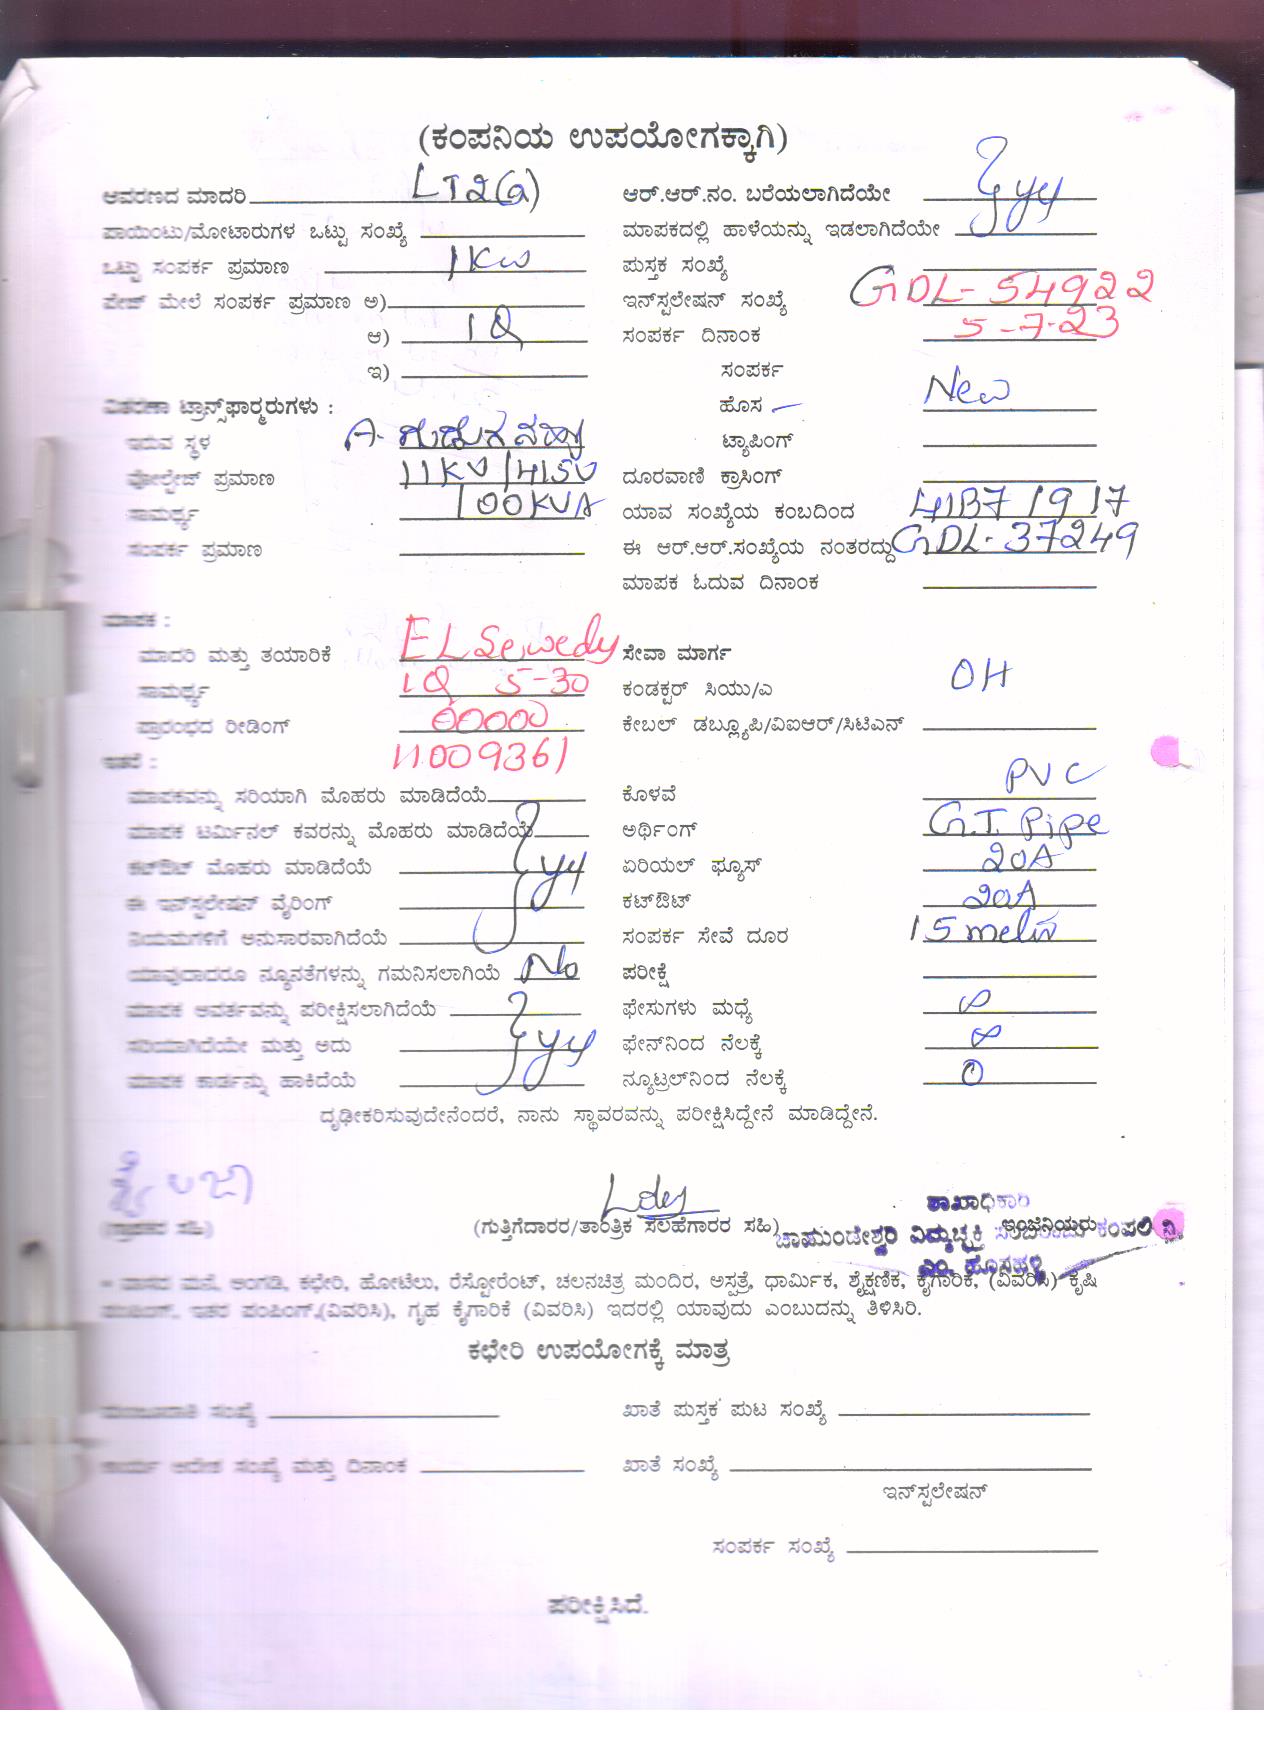 (ಕಂಪನಿಯ ಉಪಯೋಗಕ್ಕಾಗಿ)
ಆವರಣದ ಮಾದರಿ LT2(a)
ಪಾಯಿಂಟು/ಮೋಟಾರುಗಳ ಒಟ್ಟು ಸಂಖ್ಯೆ
ಒಟ್ಟು ಸಂಪರ್ಕ ಪ್ರಮಾಣ 1KW
ಪೇಜ್ ಮೇಲೆ ಸಂಪರ್ಕ ಪ್ರಮಾಣ ಅ)
ಆ) 1Q
ಇ)
ವಿತರಣಾ ಟ್ರಾನ್ಸ್‌ಫಾರ್‍ಮರುಗಳು :
ಇರುವ ಸ್ಥಳ
ವೋಲ್ಟೇಜ್ ಪ್ರಮಾಣ 11KV/415V
ಸಾಮರ್ಥ್ಯ 100KVA
ಸಂಪರ್ಕ ಪ್ರಮಾಣ
ಮಾಪಕ :
ಮಾದರಿ ಮತ್ತು ತಯಾರಿಕೆ EL Sewedy
ಸಾಮರ್ಥ್ಯ 1Q 5-30
ಪ್ರಾರಂಭದ ರೀಡಿಂಗ್ 00000
ಇತರೆ : 11009361
ಮಾಪಕವನ್ನು ಸರಿಯಾಗಿ ಮೊಹರು ಮಾಡಿದೆಯೆ
ಮಾಪಕ ಟರ್ಮಿನಲ್ ಕವರನ್ನು ಮೊಹರು ಮಾಡಿದೆಯೆ
ಕಟ್‌ಔಟ್ ಮೊಹರು ಮಾಡಿದೆಯೆ
ಈ ಇನ್‌ಸ್ಟಲೇಷನ್ ವೈರಿಂಗ್
ನಿಯಮಗಳಿಗೆ ಅನುಸಾರವಾಗಿದೆಯೆ
ಯಾವುದಾದರೂ ನ್ಯೂನತೆಗಳನ್ನು ಗಮನಿಸಲಾಗಿಯೆ No
ಮಾಪಕ ಆವರ್ತವನ್ನು ಪರೀಕ್ಷಿಸಲಾಗಿದೆಯೆ
ಸರಿಯಾಗಿದೆಯೇ ಮತ್ತು ಅದು
ಮಾಪಕ ಕಾರ್ಡನ್ನು ಹಾಕಿದೆಯೆ
ಆರ್.ಆರ್.ನಂ. ಬರೆಯಲಾಗಿದೆಯೇ
ಮಾಪಕದಲ್ಲಿ ಹಾಳೆಯನ್ನು ಇಡಲಾಗಿದೆಯೇ
ಪುಸ್ತಕ ಸಂಖ್ಯೆ
ಇನ್‌ಸ್ಟಲೇಷನ್ ಸಂಖ್ಯೆ GDL-54922
ಸಂಪರ್ಕ ದಿನಾಂಕ 5-7-23
ಸಂಪರ್ಕ
ಹೊಸ New
ಟ್ಯಾಪಿಂಗ್
ದೂರವಾಣಿ ಕ್ರಾಸಿಂಗ್
ಯಾವ ಸಂಖ್ಯೆಯ ಕಂಬದಿಂದ 41B7 1917
ಈ ಆರ್.ಆರ್.ಸಂಖ್ಯೆಯ ನಂತರದ್ದು GDL-37249
ಮಾಪಕ ಓದುವ ದಿನಾಂಕ
ಸೇವಾ ಮಾರ್ಗ
ಕಂಡಕ್ಟರ್ ಸಿಯು/ಎ OH
ಕೇಬಲ್ ಡಬ್ಲ್ಯೂಪಿ/ವಿಐಆರ್/ಸಿಟಿಎಸ್
ಕೊಳವೆ PVC
ಅರ್ಥಿಂಗ್ G.I. Pipe
ಏರಿಯಲ್ ಫ್ಯೂಸ್ 20A
ಕಟ್‌ಔಟ್ 20A
ಸಂಪರ್ಕ ಸೇವೆ ದೂರ 15
ಪರೀಕ್ಷೆ
ಫೇಸುಗಳು ಮಧ್ಯೆ ∞
ಫೇಸ್‌ನಿಂದ ನೆಲಕ್ಕೆ ∞
ನ್ಯೂಟ್ರಲ್‌ನಿಂದ ನೆಲಕ್ಕೆ 0
ದೃಢೀಕರಿಸುವುದೇನೆಂದರೆ, ನಾನು ಸ್ಥಾವರವನ್ನು ಪರೀಕ್ಷಿಸಿದ್ದೇನೆ ಮಾಡಿದ್ದೇನೆ.
(ಗ್ರಾಹಕರ ಸಹಿ)
(ಗುತ್ತಿಗೆದಾರರ/ತಾಂತ್ರಿಕ ಸಲಹೆಗಾರರ ಸಹಿ)
ಶಾಖಾಧಿಕಾರಿ
ಇಂಜಿನಿಯರು
ಚಾಮುಂಡೇಶ್ವರಿ ವಿದ್ಯುಚ್ಛಕ್ತಿ ಸರಬರಾಜು ಕಂಪನಿ ನಿ.
ಎಂ. ಹೊಸಹಳ್ಳಿ
* ವಾಸದ ಮನೆ, ಅಂಗಡಿ, ಕಛೇರಿ, ಹೋಟೆಲು, ರೆಸ್ಟೋರೆಂಟ್, ಚಲನಚಿತ್ರ ಮಂದಿರ, ಅಸ್ಪತ್ರೆ, ಧಾರ್ಮಿಕ, ಶೈಕ್ಷಣಿಕ, ಕೈಗಾರಿಕೆ, (ವಿವರಿಸಿ) ಕೃಷಿ
ಪಂಪಿಂಗ್, ಇತರ ಪಂಪಿಂಗ್,(ವಿವರಿಸಿ), ಗೃಹ ಕೈಗಾರಿಕೆ (ವಿವರಿಸಿ) ಇದರಲ್ಲಿ ಯಾವುದು ಎಂಬುದನ್ನು ತಿಳಿಸಿರಿ.
ಕಛೇರಿ ಉಪಯೋಗಕ್ಕೆ ಮಾತ್ರ
ಸಂಖ್ಯೆ
ಕಾರ್ಯ ಆದೇಶ ಸಂಖ್ಯೆ ಮತ್ತು ದಿನಾಂಕ
ಖಾತೆ ಪುಸ್ತಕ ಪುಟ ಸಂಖ್ಯೆ
ಖಾತೆ ಸಂಖ್ಯೆ
ಇನ್‌ಸ್ಟಲೇಷನ್
ಸಂಪರ್ಕ ಸಂಖ್ಯೆ
ಪರೀಕ್ಷಿಸಿದೆ.